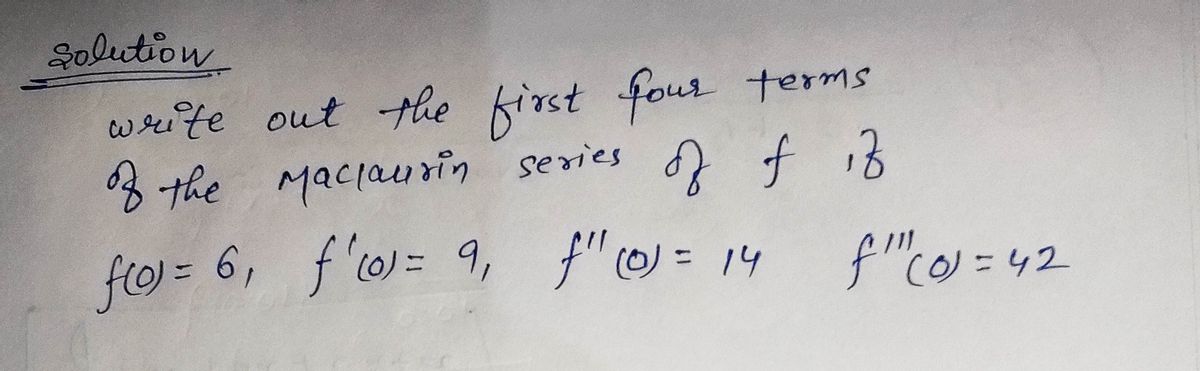 Solution
write out the first four terms
of the Maclaurin series of f if
f(0) = 6, f'(0) = 9, f''(0) = 14 f'''(0) = 42